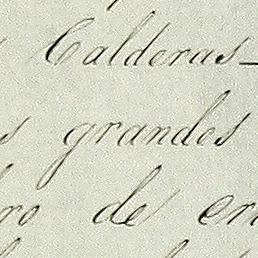 Calderas
s grandes
ro de en